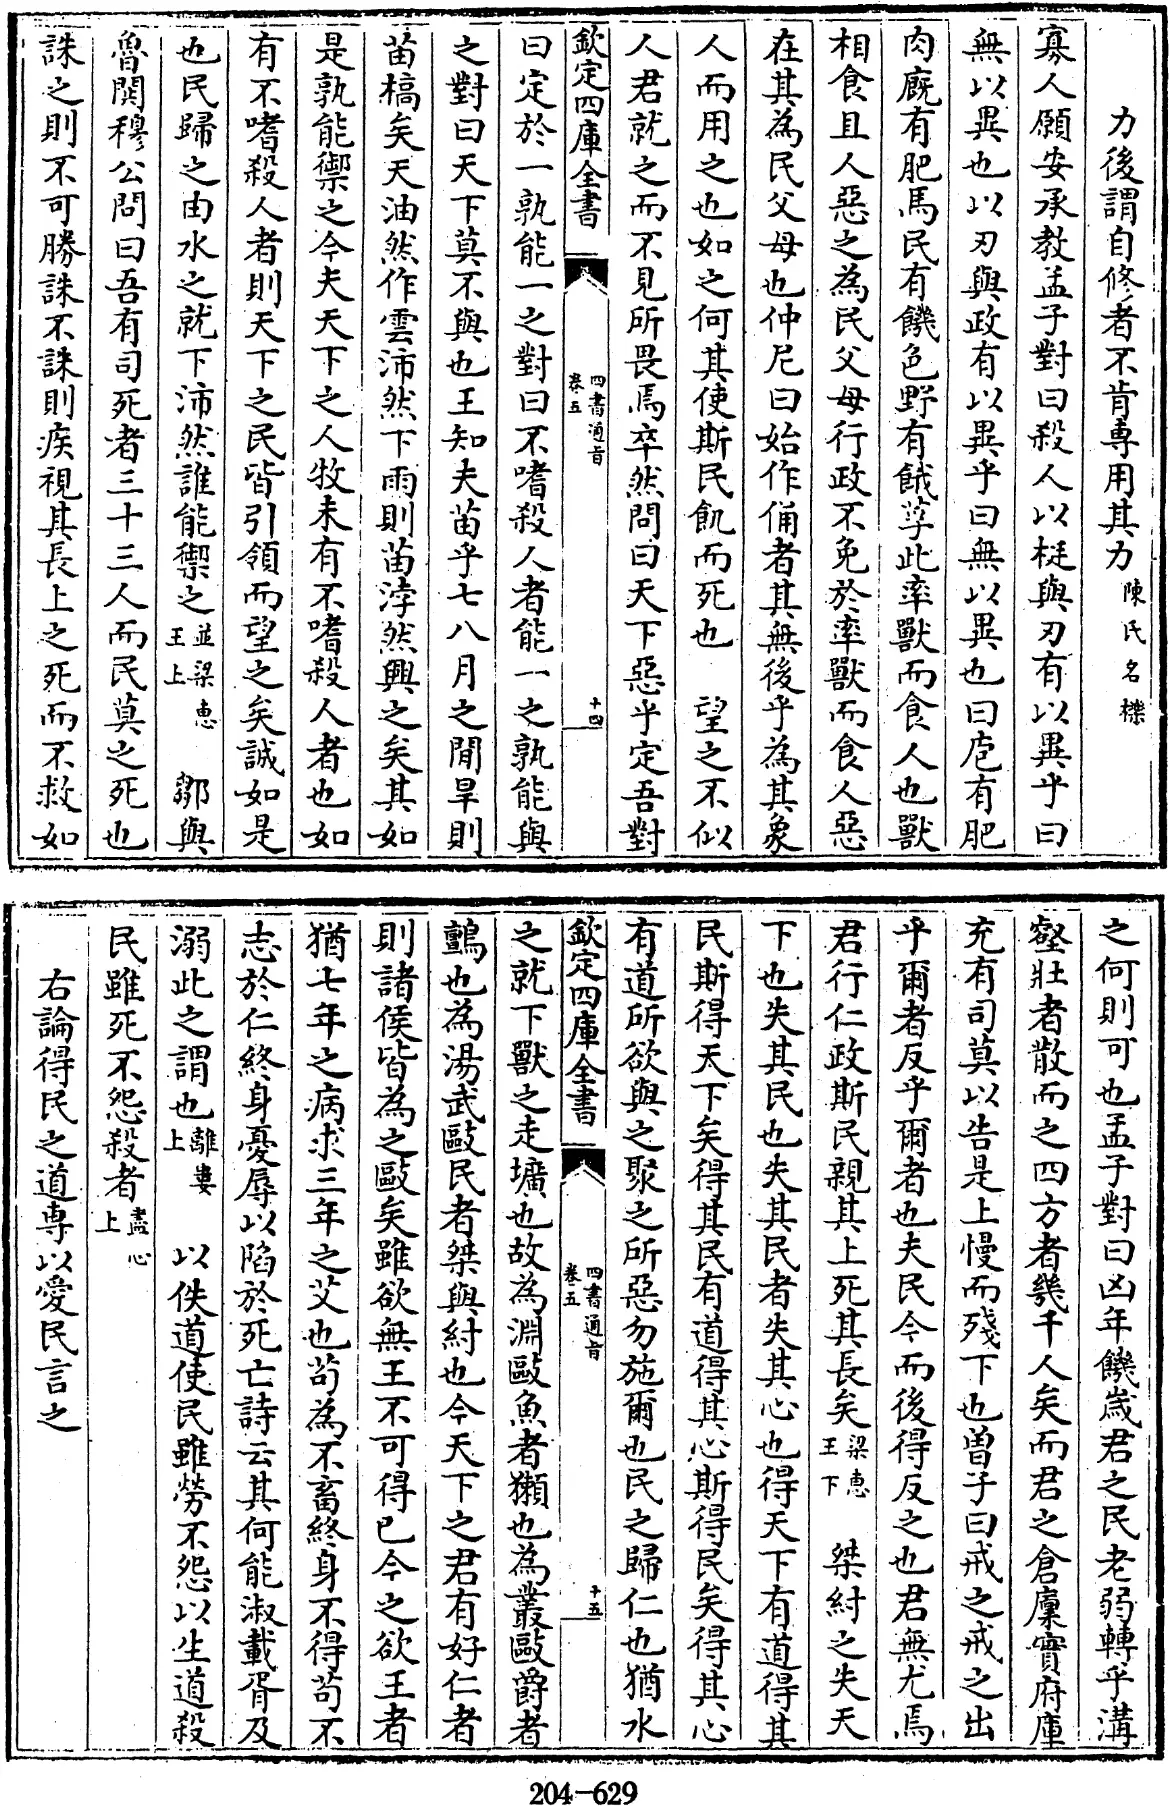 力後謂自修者不肯専用其力陳氏名櫟
寡人願安承教孟子對曰殺人以梃與刃有以異乎曰
無以異也以刃與政有以異乎曰無以異也曰庖有肥
肉廐有肥馬民有饑色野有餓莩此率獸而食人也獸
相食且人惡之為民父母行政不免於率獸而食人惡
在其為民父母也仲尼曰始作俑者其無後乎為其象
人而用之也如之何其使斯民飢而死也　望之不似
人君就之而不見所畏焉卒然問曰天下惡乎定吾對
欽定四庫全書　四書通旨　卷五　十四
曰定於一孰能一之對曰不嗜殺人者能一之孰能與
之對曰天下莫不與也王知夫苗乎七八月之間旱則
苗槁矣天油然作雲沛然下雨則苗浡然興之矣其如
是孰能禦之今夫天下之人牧未有不嗜殺人者也如
有不嗜殺人者則天下之民皆引領而望之矣誠如是
也民歸之由水之就下沛然誰能禦之並梁恵王上　鄒與
魯閧穆公問曰吾有司死者三十三人而民莫之死也
誅之則不可勝誅不誅則疾視其長上之死而不救如
之何則可也孟子對曰凶年饑歳君之民老弱轉乎溝
壑壯者散而之四方者幾千人矣而君之倉廩實府庫
充有司莫以告是上慢而殘下也曽子曰戒之戒之出
乎爾者反乎爾者也夫民今而後得反之也君無尤焉
君行仁政斯民親其上死其長矣梁恵王下　桀紂之失天
下也失其民也失其民者失其心也得天下有道得其
民斯得天下矣得其民有道得其心斯得民矣得其心
有道所欲與之聚之所惡勿施爾也民之歸仁也猶水
欽定四庫全書　四書通旨　卷五　十五
之就下獸之走壙也故為淵敺魚者獺也為叢敺爵者
鸇也為湯武敺民者桀與紂也今天下之君有好仁者
則諸侯皆為之敺矣雖欲無王不可得已今之欲王者
猶七年之病求三年之艾也茍為不畜終身不得茍不
志於仁終身憂辱以陷於死亡詩云其何能淑載胥及
溺此之謂也離婁上　以佚道使民雖勞不怨以生道殺
民雖死不怨殺者盡心上
右論得民之道専以愛民言之
204-629